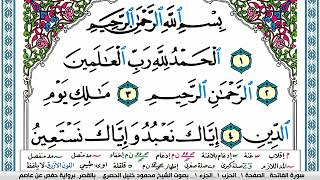 بِسْمِ ٱللَّهِ ٱلرَّحْمَٰنِ ٱلرَّحِيمِ
ٱلْحَمْدُ لِلَّهِ رَبِّ ٱلْعَٰلَمِينَ ١
ٱلرَّحْمَٰنِ ٱلرَّحِيمِ ٢ مَٰلِكِ يَوْمِ ٣
ٱلدِّينِ ٤ إِيَّاكَ نَعْبُدُ وَإِيَّاكَ نَسْتَعِينُ
سورة الفاتحة الصفحة 1 الجزء 1 الحزب 1 بصوت الشيخ محمود خليل الحصري بالقصر برواية حفص عن عاصم